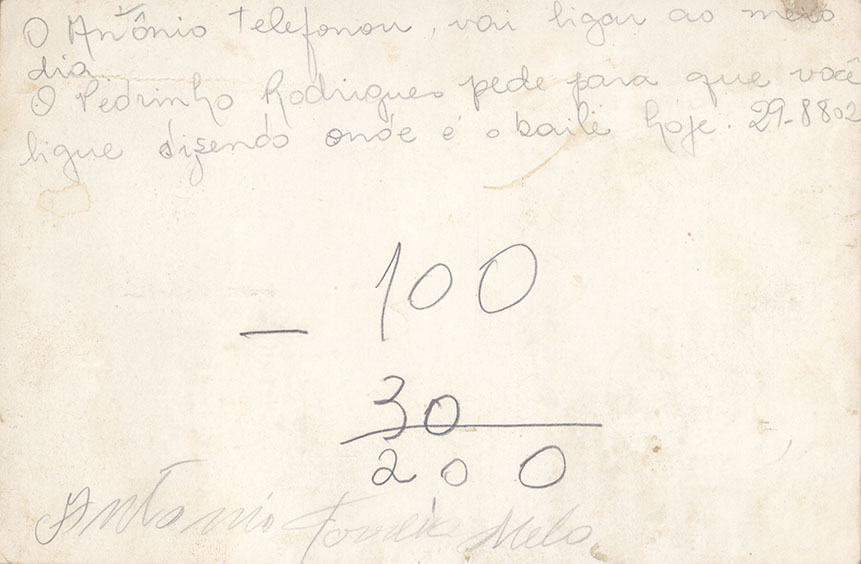 O Antônio telefonou, vai ligar ao meio
dia.
O Pedrinho Rodrigues pede para que você
ligue dizendo onde é o baile hoje. 29-8802
— 100
30
200
Antonio Melo